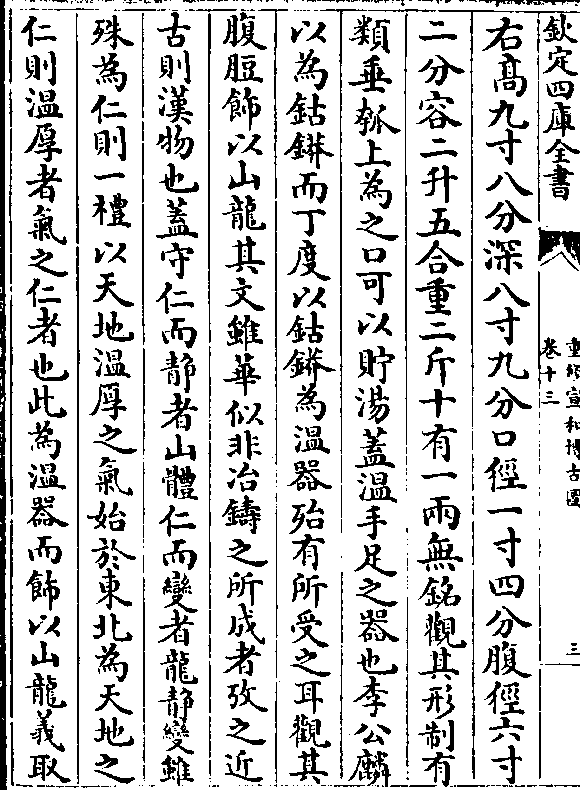 欽定四庫全書
重修宣和博古圖
卷十三
三
右髙九寸八分深八寸九分口徑一寸四分腹徑六寸
二分容二升五合重二斤十有一兩無銘觀其形制有
類垂瓠上為之口可以貯湯蓋温手足之器也李公麟
以為鈷䥈而丁度以鈷䥈為温器殆有所受之耳觀其
腹脰飾以山龍其文雖華似非冶鑄之所成者攷之近
古則漢物也蓋守仁而靜者山體仁而變者龍靜變雖
殊為仁則一禮以天地温厚之氣始於東北為天地之
仁則温厚者氣之仁者也此為温器而飾以山龍義取